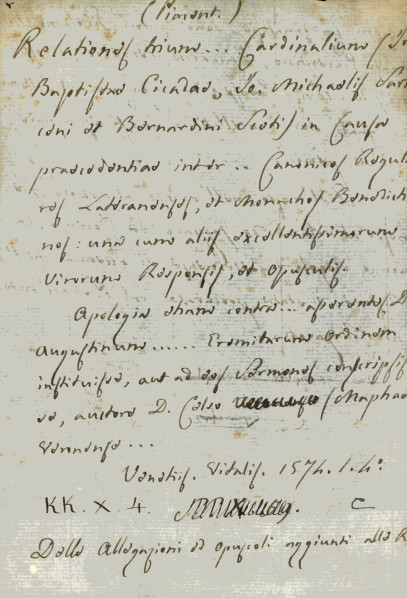 (Piemont.)
Relationes trium... Cardinalium (Jo
Baptistae Cicadae, Jo. Michaelis Sara
ceni et Bernardini Scoti) in Causa
praecedentiae inter... Canonicos Regula
res Lateranenses, et Monachos Benedicti
nos: una cum aliis excellentissimorum
Virorum Responsis, et opusculis.
Apologia etiam contra... asserentes, D.
Augustinum...... Eremitarum Ordinem
instituisse, aut ad eos Sermones conscripsis
se, auctore D. Celso (Maphaeo
Veronense...
Venetiis. Vitalis. 1574. i. 4°
KK. X. 4. C
Delle Allegazioni ed opuscoli aggiunti alle R